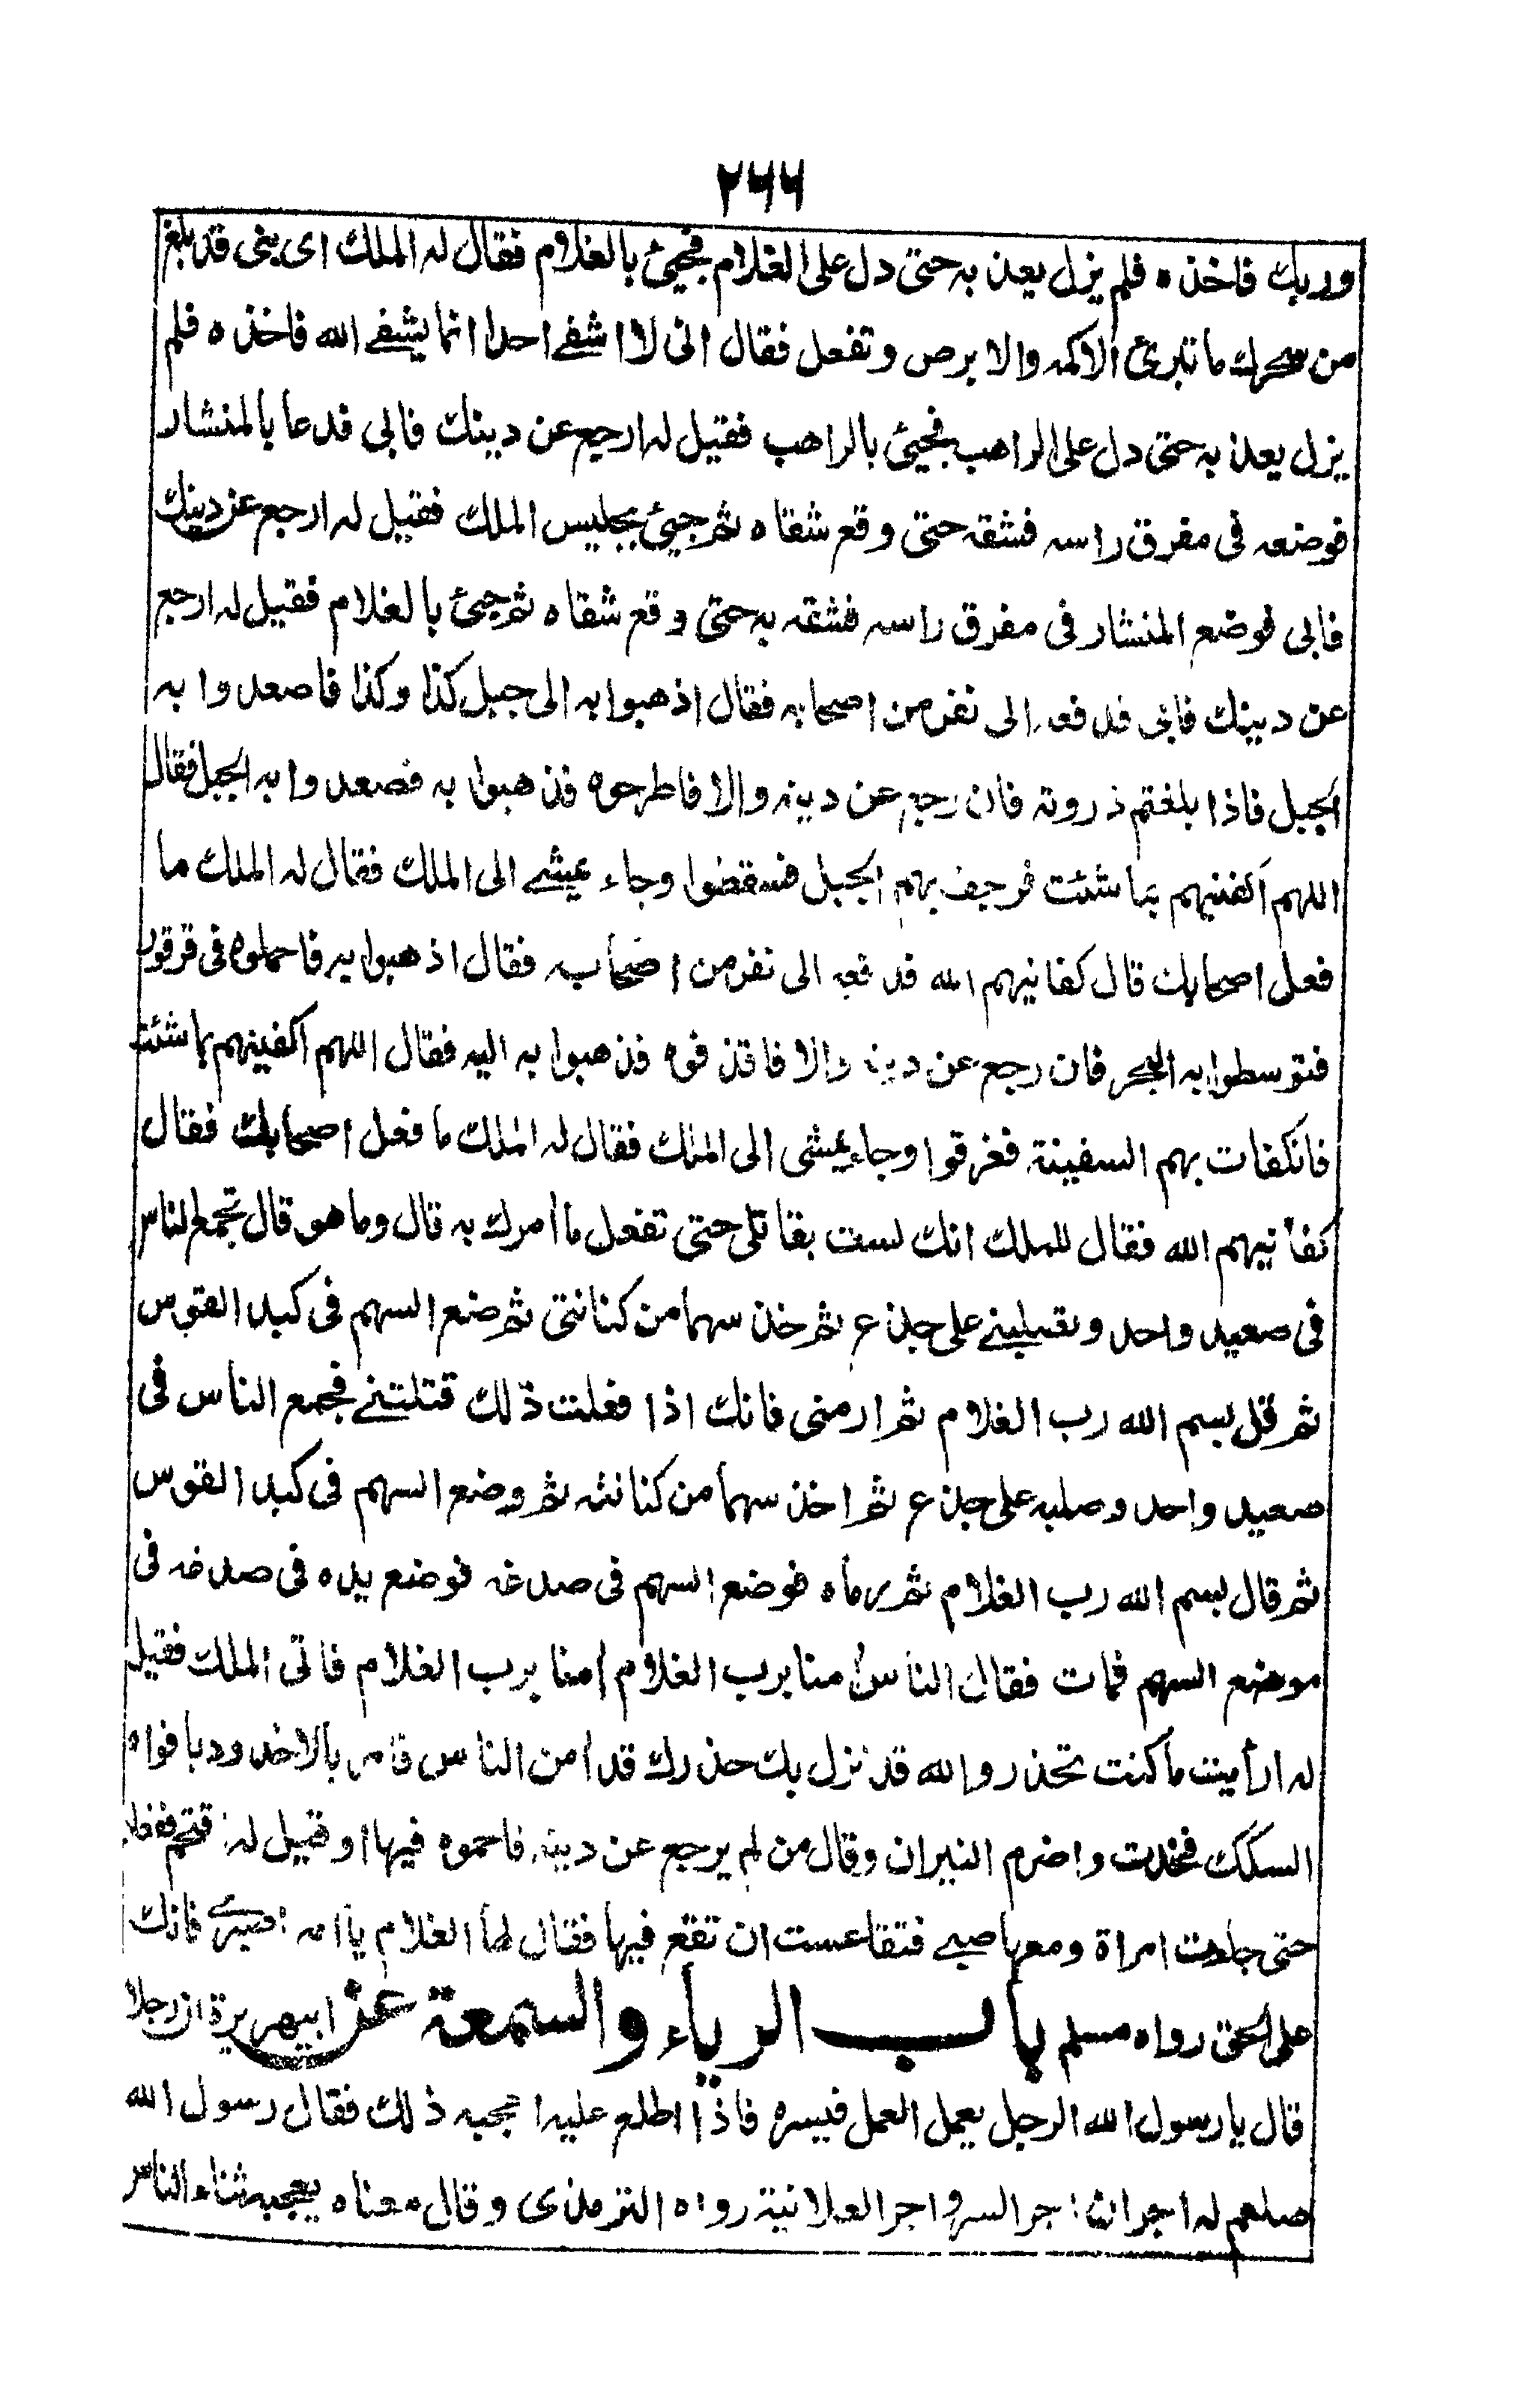 ٢٦٦
وربك فاخذه فلم يزل يعذبه حتى دل على الغلام فجيئ بالغلام فقال له الملك اى بنى قد بلغ
من سحرك ما تبرئ الاكمه والابرص وتفعل فقال انى لا اشفے احدا انما يشفے الله فاخذه فلم
يزل يعذبه حتى دل على الراهب فجيئ بالراهب فقيل له ارجع عن دينك فابى فدعا بالمنشار
فوضعه فى مفرق راسه فشقه حتى وقع شقاه ثم جيئ بجليس الملك فقيل له ارجع عن دينك
فابى فوضع المنشار فى مفرق راسه فشقه به حتى وقع شقاه ثم جيئ بالغلام فقيل له ارجع
عن دينك فابى فدفعه الى نفر من اصحابه فقال اذهبوا به الى جبل كذا وكذا فاصعدوا به
الجبل فاذا بلغتم ذروته فان رجع عن دينه والا فاطرحوه فذهبوا به فصعدوا به الجبل فقال
اللهم اكفنيهم بما شئت فرجف بهم الجبل فسقطوا وجاء يمشے الى الملك فقال له الملك ما
فعل اصحابك قال كفانيهم الله فدفعه الى نفر من اصحابه فقال اذهبوا به فاحملوه فى قرقور
فتوسطوا به البحر فان رجع عن دينه والا فاقذفوه فذهبوا به اليه فقال اللهم اكفينهم بما شئت
فانكفات بهم السفينة فغرقوا وجاء يمشى الى الملك فقال له الملك ما فعل اصحابك فقال
كفانيهم الله فقال للملك انك لست بقاتلى حتى تفعل ما أمرك به قال وما هو قال تجمع الناس
فى صعيد واحد وتصلبنے على جذع ثم خذ سهما من كنانتى ثم ضع السهم فى كبد القوس
ثم قل بسم الله رب الغلام ثم ارمنى فانك اذا فعلت ذلك قتلتنے فجمع الناس فى
صعيد واحد وصلبه على جذع ثم اخذ سهما من كنانته ثم وضع السهم فى كبد القوس
ثم قال بسم الله رب الغلام ثم رماه فوضع السهم فى صدغه فوضع يده فى صدغه فى
موضع السهم فمات فقال الناس أمنا برب الغلام أمنا برب الغلام فاتى الملك فقيل
له ارأيت ما كنت تحذر والله قد نزل بك حذرك قد أمن الناس فامر بالاخدود بافواه
السكك فخدت واضرم النيران وقال من لم يرجع عن دينه فاحموه فيها او قيل له اقتحم ففعلوا
حتى جاءت امراة ومعها صبے فتقاعست ان تقع فيها فقال لها الغلام يا امه اصبرے فانك
على الحق رواه مسلم باب الرياء والسمعة عن ابيهريرة ان رجلا
قال يا رسول الله الرجل يعمل العمل فيسره فاذا اطلع عليه اعجبه ذلك فقال رسول الله
صلعم له اجران اجر السر واجر العلانية رواه الترمذى وقال معناه يعجبه ثناء الناس